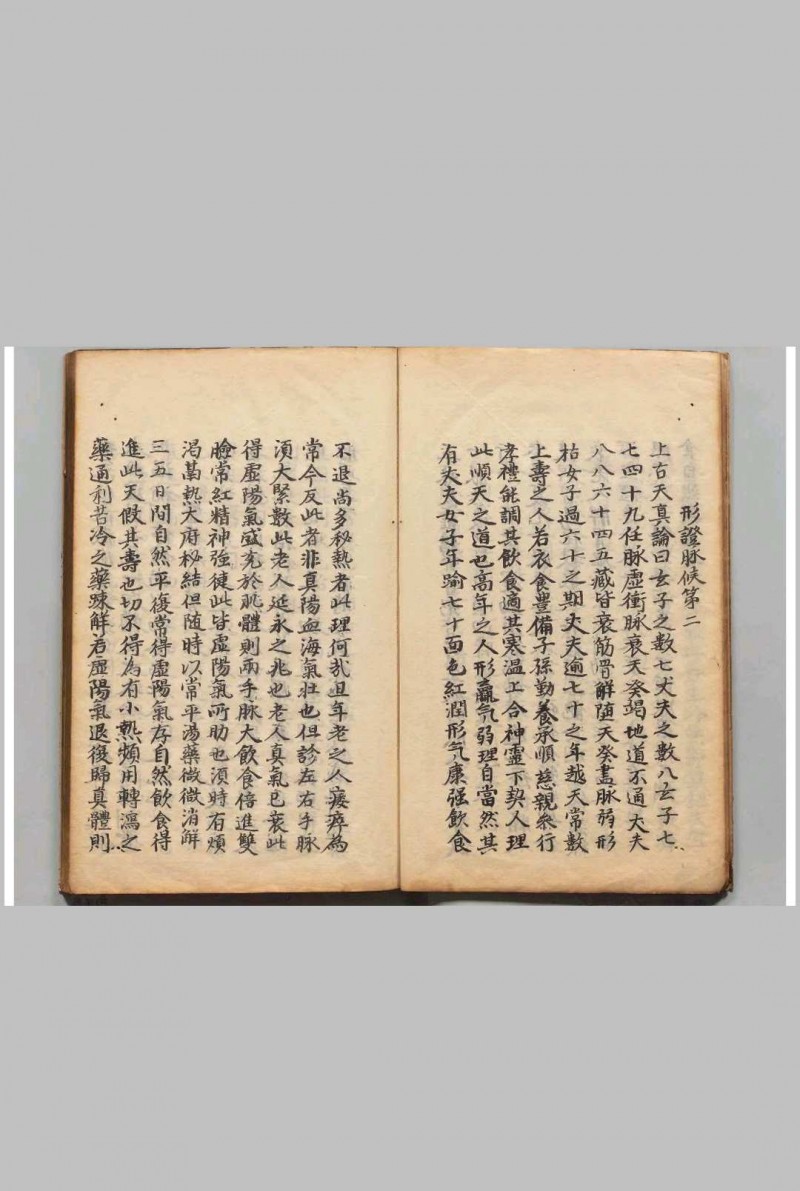 形證脉候第二
上古天真論曰女子之數七丈夫之數八女子七
七四十九任脉虛衝脉衰天癸竭地道不通丈夫
八八六十四五藏皆衰筋骨解堕天癸盡脉弱形
枯女子過六十之期丈夫逾七十之年越天常數
上壽之人若衣食豊備子孫勤養承順慈親叅行
孝禮能調其飲食適其寒温上合神靈下契人理
此順天之道也高年之人形羸气弱理自當然其
有丈夫女子年踰七十面色紅潤形气康强飲食
不退尚多秘熱者此理何㢤且年老之人痿瘁為
常今反此者非真陽血海氣壮也但診左右手脉
湏大緊數此老人延永之兆也老人真氣已衰此
得虛陽氣盛充於肌體則兩手脉大飲食倍進雙
臉常紅精神強徤此皆虛陽氣所助也湏時有煩
渇萬熱大府秘結但随時以常平湯藥微微消解
三五日間自然平復常得虛陽氣存自然飲食得
進此天假其壽也切不得為有小熱頻用轉瀉之
藥通利苦冷之藥踈解若虛陽氣退復歸真體則